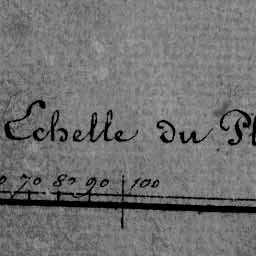 Echelle du Pl
0 70 80 90 100